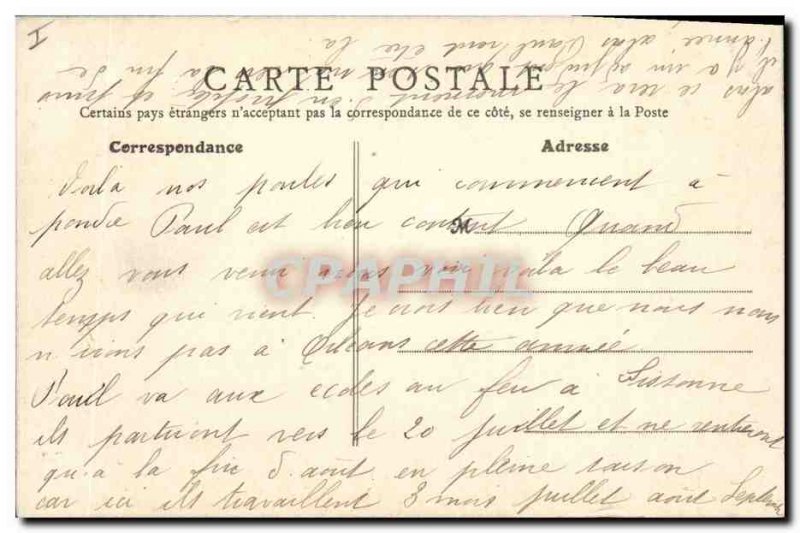 I
CARTE POSTALE
Certains pays étrangers n'acceptant pas la correspondance de ce côté, se renseigner à la Poste
Correspondance
Adresse
Voilà nos poules qui commencent à
pondre Paul est bien content Quand
M
allez vous venir nous voir voila le beau
CPAPHIL
temps qui vient. Je crois bien que nous nous
n irons pas à Orléans cette année
Paul va aux ecoles au feu à Sissonne
ils partiront vers le 20 juillet et ne rentreront
qu'a la fin d. août en pleine saison
car ici ils travaillent 3 mois juillet août Septembre
alas ce sera le moment d'en profiter et puis
il y a un la fin de
l'année alas Paul etre la